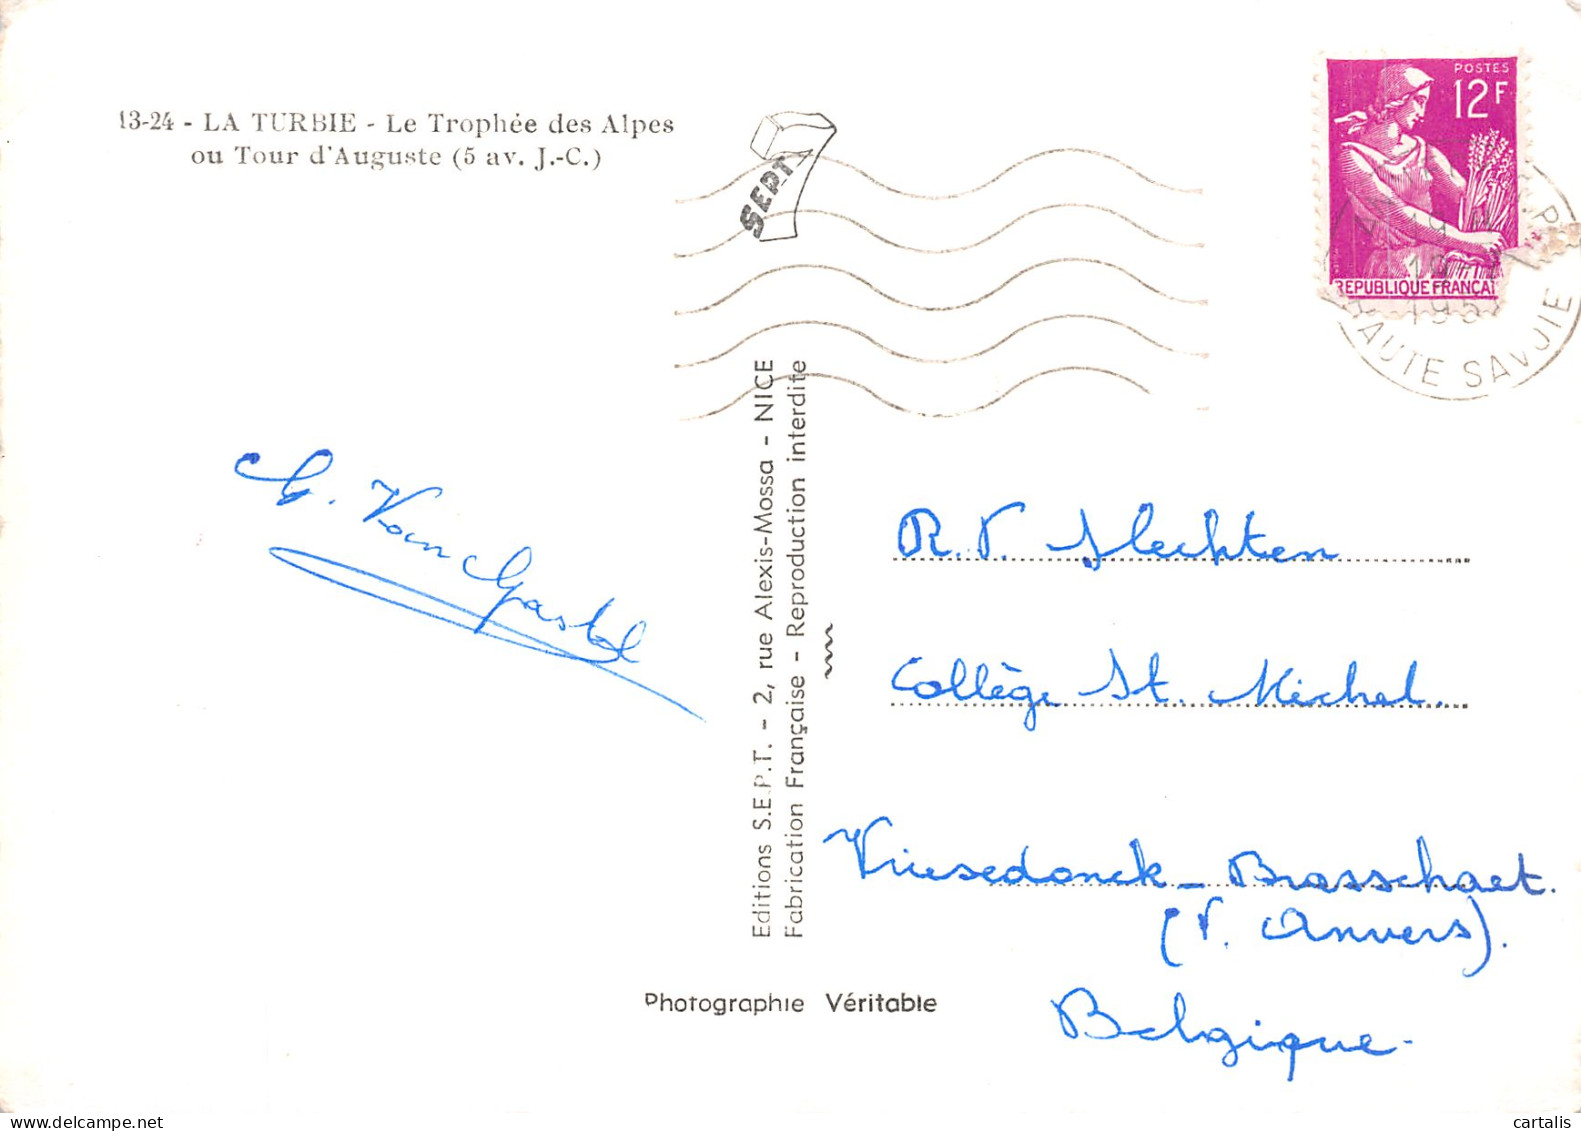 13-24 - LA TURBIE - Le Trophée des Alpes
ou Tour d'Auguste (5 av. J.-C.)
SEPT
POSTES
12F
REPUBLIQUE FRANÇAI
HAUTE SAVOIE
G. Van Gastel
Editions S.E.P.T. - 2, rue Alexis-Mossa - NICE
Fabrication Française - Reproduction interdite
R.P. Slechten
Collège St. Michel.
Vriesedonck - Brasschaet.
(P. Anvers).
Belgique.
Photographie Véritable
cartalis
delcampe.net